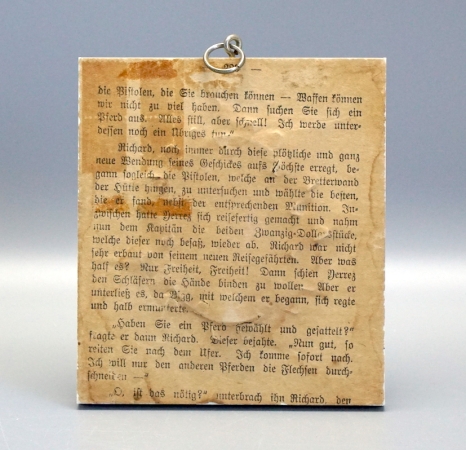 die Pistolen, die Sie brauchen können — Waffen können
wir nicht zu viel haben. Dann suchen Sie sich ein
Pferd aus. Alles still, aber schnell! Ich werde unter-
dessen noch ein Übriges tun."
Richard, noch immer durch diese plötzliche und ganz
neue Wendung seines Geschickes aufs Höchste erregt, be-
gann sogleich die Pistolen, welche an der Bretterwand
der Hütte hingen, zu untersuchen und wählte die besten,
die er fand, nebst der entsprechenden Munition. In-
zwischen hatte Yerrez sich reisefertig gemacht und nahm
nun dem Kapitän die beiden Zwanzig-Dollarstücke,
welche dieser noch besaß, wieder ab. Richard war nicht
sehr erbaut von seinem neuen Reisegefährten. Aber was
half es? Nur Freiheit, Freiheit! Dann schien Yerrez
den Schläfern die Hände binden zu wollen. Aber er
unterließ es, da mit welchem er begann, sich regte
und halb ermunterte.
„Haben Sie ein Pferd gewählt und gesattelt?"
fragte er dann Richard. Dieser bejahte. „Nun gut, so
reiten Sie nach dem Ufer. Ich komme sofort nach.
Ich will nur den anderen Pferden die Flechsen durch-
schneiden —"
„O, ist das nötig?" unterbrach ihn Richard, den